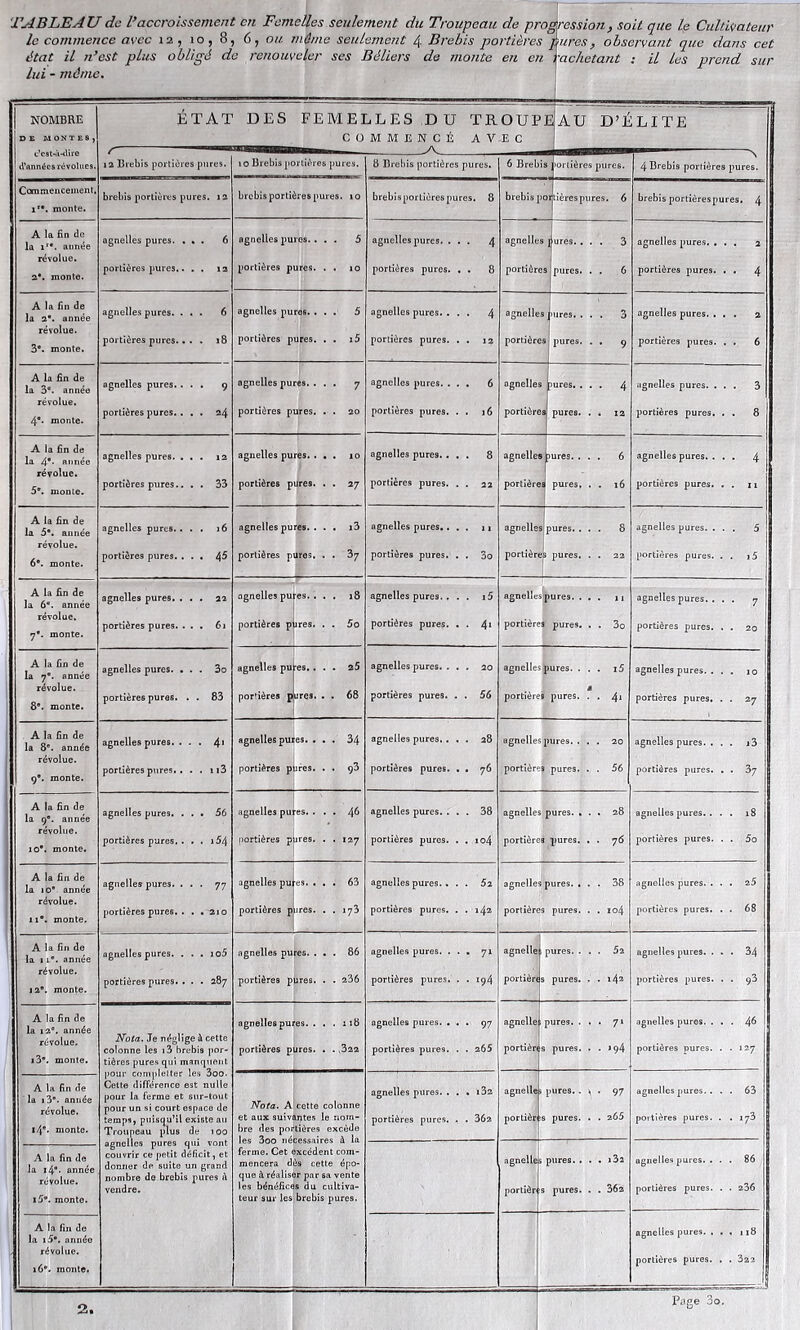 TABLEAU de l'accroissement en Femelles seulement du Troupeau de progression, soit que le Cultivateur
le commence avec 12, 10, 8, 6, ou même seulement 4 Brebis portières pures, observant que dans cet
état il n'est plus obligé de renouveler ses Béliers de monte en en rachetant : il les prend sur
lui-même.
NOMBRE
DE MONTES,
c'est-à-dire
d'années révolues.
ÉTAT DES FEMELLES DU TROUPEAU D'ÉLITE
COMMENCÉ AVEC
12 Brebis portières pures. 10 Brebis portières pures. 8 Brebis portières pures. 6 Brebis portières pures. 4 Brebis portières pures.
Commencement,
1re. monte.
brebis portières pures. 12 brebis portières pures. 10 brebis portières pures. 8 brebis portières pures. 6 brebis portières pures. 4
A la fin de
la 1re. année
révolue.
2e. monte.
agnelles pures. . . . 6 agnelles pures. . . . 5 agnelles pures. . . . 4 agnelles pures. . . . 3 agnelles pures. . . . 2
portières pures. . . . 12 portières pures. . . 10 portières pures. . . 8 portières pures. . . 6 portières pures. . . 4
A la fin de
la 2e. année
révolue.
3e. monte.
agnelles pures. . . . 6 agnelles pures. . . . 5 agnelles pures. . . . 4 agnelles pures. . . . 3 agnelles pures. . . . 2
portières pures. . . . 18 portières pures. . . 15 portières pures. . . 12 portières pures. . . 9 portières pures. . . 6
A la fin de
la 3e. année
révolue.
4e. monte.
agnelles pures. . . . 9 agnelles pures. . . . 7 agnelles pures. . . . 6 agnelles pures. . . . 4 agnelles pures. . . . 3
portières pures. . . . 24 portières pures. . . 20 portières pures. . . 16 portières pures. . . 12 portières pures. . . 8
A la fin de
la 4e. année
révolue.
5e. monte.
agnelles pures. . . . 12 agnelles pures. . . . 10 agnelles pures. . . . 8 agnelles pures. . . . 6 agnelles pures. . . . 4
portières pures. . . . 33 portières pures. . . 27 portières pures. . . 22 portières pures. . . 16 portières pures. . . 11
A la fin de
la 5e. année
révolue.
6e. monte.
agnelles pures. . . . 16 agnelles pures. . . . 13 agnelles pures. . . . 11 agnelles pures. . . . 8 agnelles pures. . . . 5
portières pures. . . . 45 portières pures. . . 37 portières pures. . . 30 portières pures. . . 22 portières pures. . . 15
A la fin de
la 6e. année
révolue.
7e. monte.
agnelles pures. . . . 22 agnelles pures. . . . 18 agnelles pures. . . . 15 agnelles pures. . . . 11 agnelles pures. . . . 7
portières pures. . . . 61 portières pures. . . 50 portières pures. . . 41 portières pures. . . 30 portières pures. . . 20
A la fin de
la 7e. année
révolue.
8e. monte.
agnelles pures. . . . 30 agnelles pures. . . . 25 agnelles pures. . . . 20 agnelles pures. . . . 15 agnelles pures. . . . 10
portières pures. . . 83 portières pures. . . 68 portières pures. . . 56 portières pures. . . 41 portières pures. . . 27
A la fin de
la 8e. année
révolue.
9e. monte.
agnelles pures. . . . 41 agnelles pures. . . . 34 agnelles pures. . . . 28 agnelles pures. . . . 20 agnelles pures. . . . 13
portières pures. . . . 113 portières pures. . . 93 portières pures. . . 76 portières pures. . . 56 portières pures. . . 37
A la fin de
la 9e. année
révolue.
10e. monte.
agnelles pures. . . . 56 agnelles pures. . . . 46 agnelles pures. . . . 38 agnelles pures. . . . 28 agnelles pures. . . . 18
portières pures. . . . 154 portières pures. . . 127 portières pures. . . 104 portières pures. . . 76 portières pures. . . 50
A la fin de
la 10e année
révolue.
11e. monte.
agnelles pures. . . . 77 agnelles pures. . . . 63 agnelles pures. . . . 52 agnelles pures. . . . 38 agnelles pures. . . . 25
portières pures. . . . 210 portières pures. . . 173 portières pures. . . 142 portières pures. . . 104 portières pures. . . 68
A la fin de
la 11e. année
révolue.
12e. monte.
agnelles pures. . . . 105 agnelles pures. . . . 86 agnelles pures. . . . 71 agnelles pures. . . . 52 agnelles pures. . . . 34
portières pures. . . . 287 portières pures. . . 236 portières pures. . . 194 portières pures. . . 142 portières pures. . . 93
A la fin de
la 12e. année
révolue.
13e. monte.
agnelles pures. . . . 118 agnelles pures. . . . 97 agnelles pures. . . . 71 agnelles pures. . . . 46
portières pures. . . 322 portières pures. . . 265 portières pures. . . 194 portières pures. . . 127
Nota. Je néglige à cette
colonne les 13 brebis por-
tières pures qui manquent
pour compléter les 300.
Cette différence est nulle
pour la ferme et sur-tout
pour un si court espace de
temps, puisqu'il existe au
Troupeau plus de 100
agnelles pures qui vont
couvrir ce petit déficit, et
donner de suite un grand
nombre de brebis pures à
vendre.
A la fin de
la 13e. année
révolue.
14e. monte.
Nota. A cette colonne
et aux suivantes le nom-
bre des portières excède
les 300 nécessaires à la
ferme. Cet excédent com-
mencera dès cette épo-
que à réaliser par sa vente
les bénéfices du cultiva-
teur sur les brebis pures.
agnelles pures. . . . 132 agnelles pures. . . . 97 agnelles pures. . . . 63
portières pures. . . 362 portières pures. . . 265 portières pures. . . 173
A la fin de
la 14e. année
révolue.
15e. monte.
agnelles pures. . . . 132 agnelles pures. . . . 86
portières pures. . . 362 portières pures. . . 236
A la fin de
la 15e. année
révolue.
16e. monte.
agnelles pures. . . . 118
portières pures. . . 322
2.
Page 30.